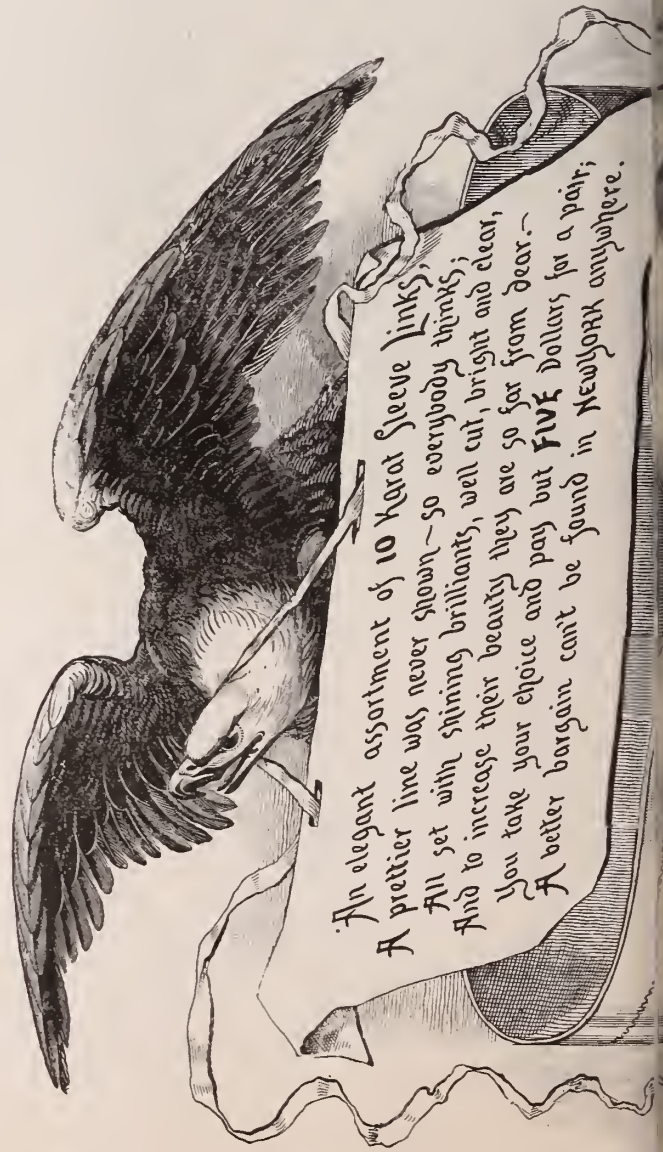 An elegant assortment of 10 Karat Sleeve Links,
A prettier line was never shown~so everybody thinks;
All set with shining brilliants, well cut, bright and clear,
And to increase their beauty they are so far from dear.~
You take your choice and pay but FIVE Dollars for a pair;
A better bargain can't be found in NEWYORK anywhere.